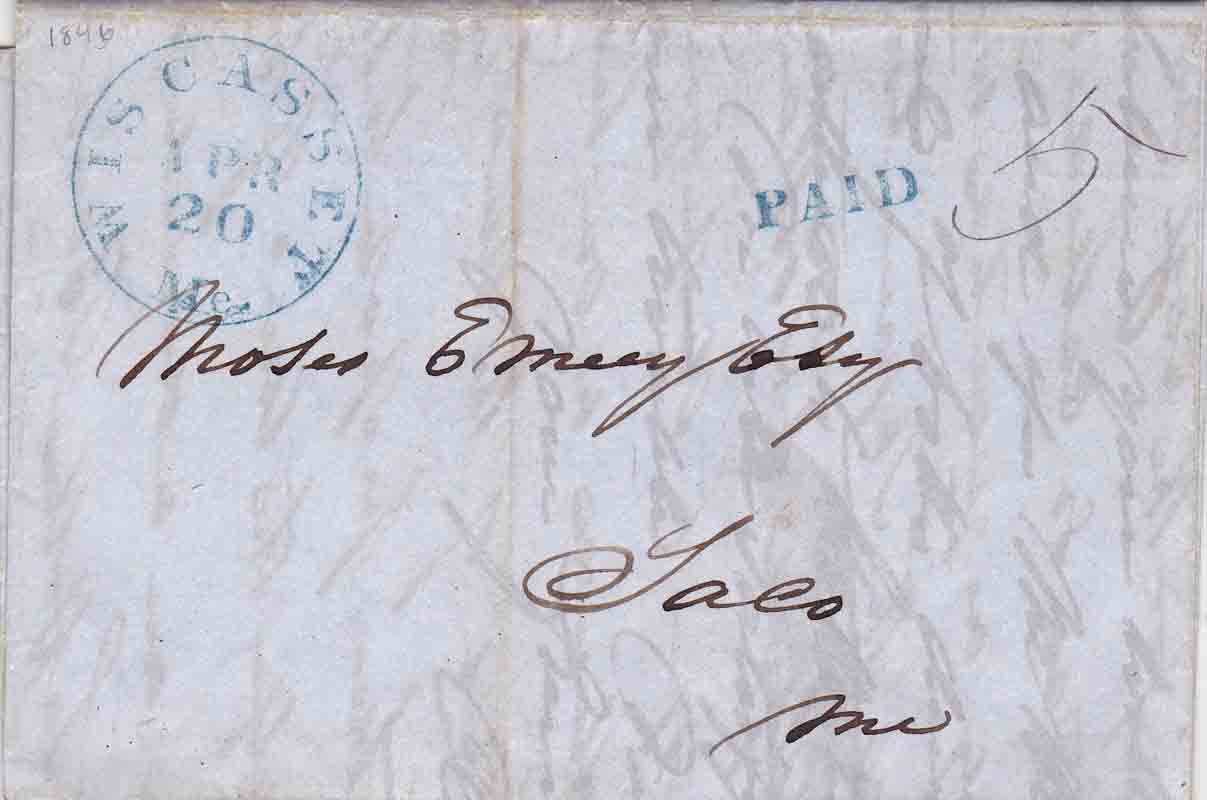 1846
WISCASSET
APR
20
Me.
PAID 5
Moses Emery Esq
Saco
Me